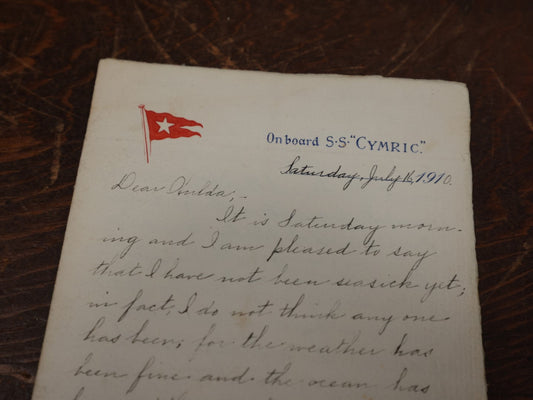 On board S.S. "CYMRIC."
Saturday, July 16, 1910.
Dear Hulda,
It is Saturday morn-
ing and I am pleased to say
that I have not been seasick yet;
in fact, I do not think any one
has been; for the weather has
been fine and the ocean has